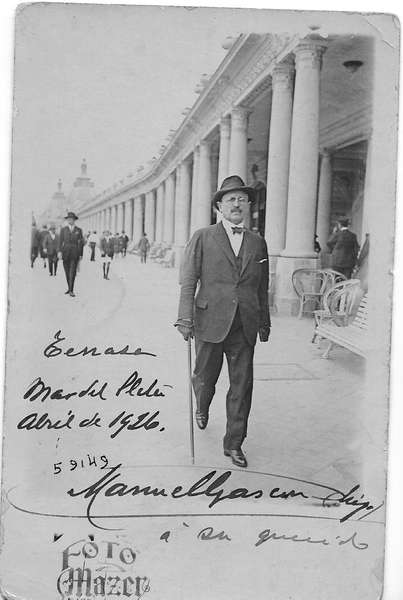 Terrase
Mar del Plata
Abril de 1926.
59149
Manuel Gascon hijo
á su querido
FOTO
Mazer